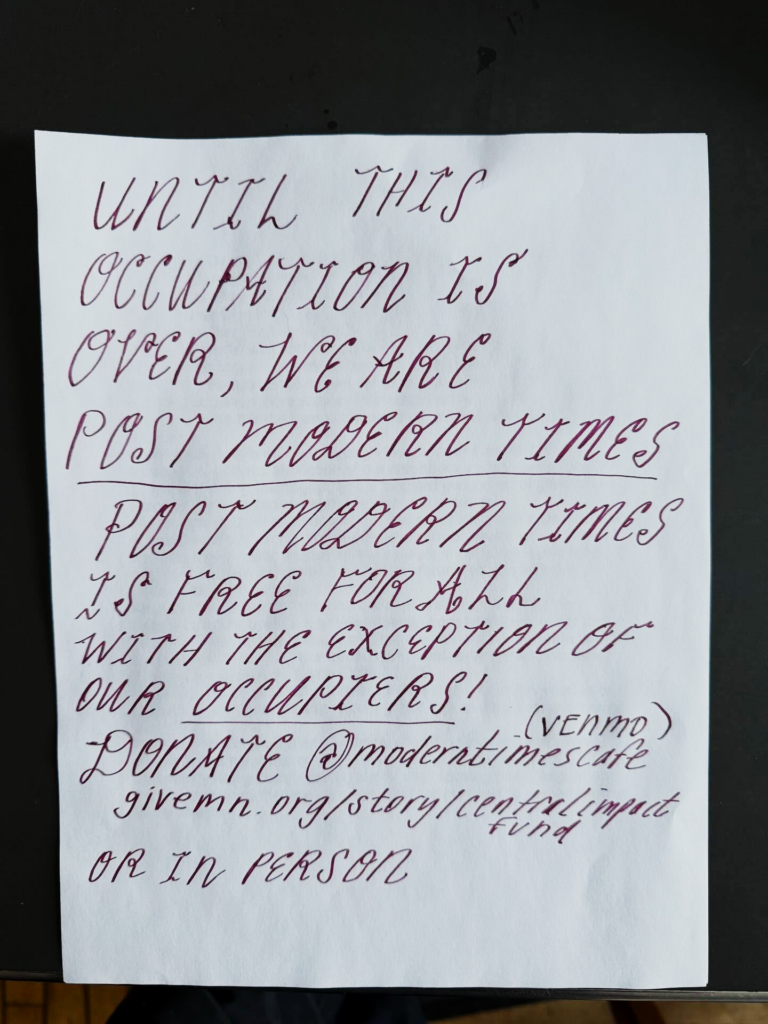 UNTIL THIS
OCCUPATION IS
OVER, WE ARE
POST MODERN TIMES
POST MODERN TIMES
IS FREE FOR ALL
WITH THE EXCEPTION OF
OUR OCCUPIERS!
(VENMO)
DONATE @moderntimescafe
givemn.org/story/centralimpact
fund
OR IN PERSON